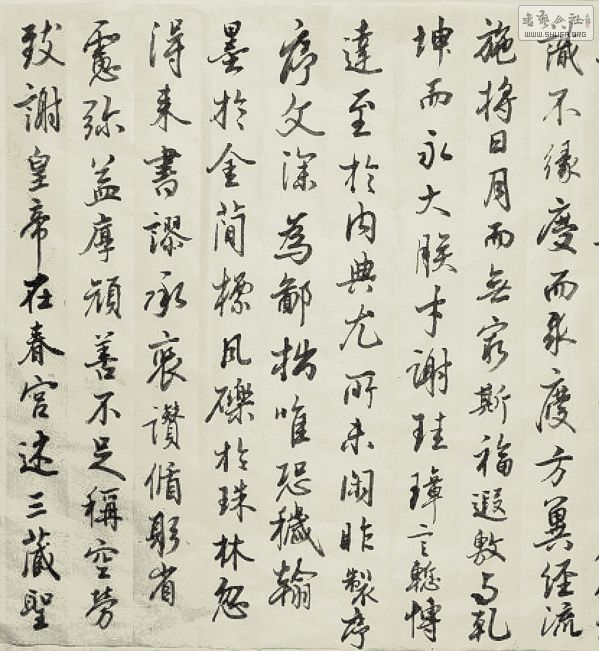 識不緣慶而求慶方冀經流
施將日月而無窮斯福遐敷与乾
坤而永大朕才謝珪璋言慙博
達至於內典尤所未閑昨製序
序文深為鄙拙唯恐穢翰
墨於金簡標瓦礫於珠林忽
得来書謬承褒讚循躬省
慮弥益厚顔善不足稱空勞
致謝皇帝在春宮述三藏聖
書藝公社
WWW.SHUFA.ORG